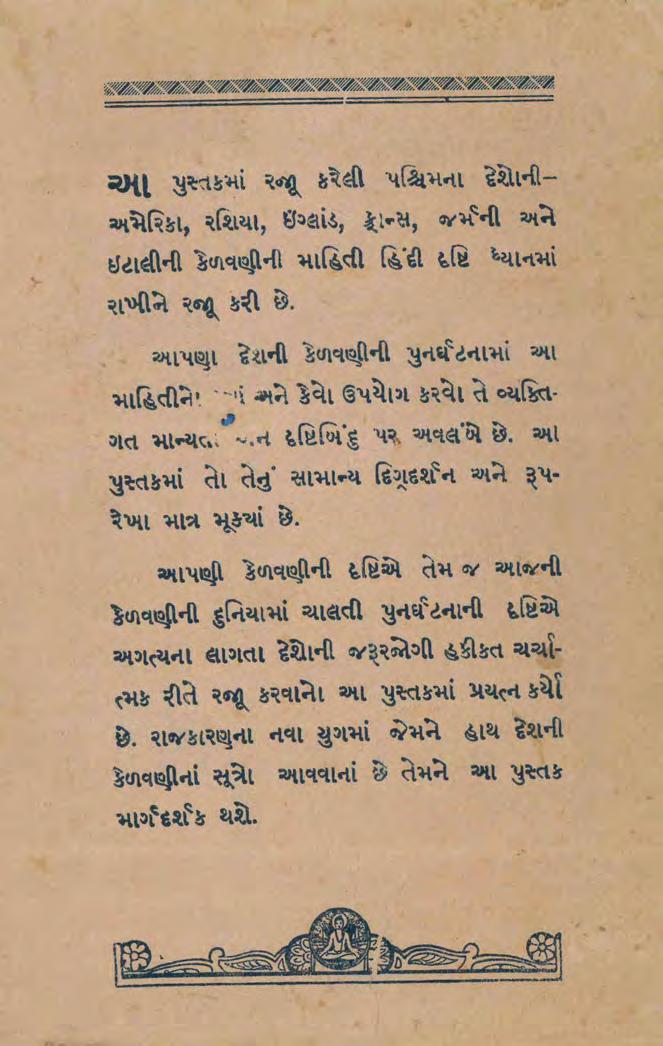 આ પુસ્તકમાં રજૂ કરેલી પશ્ચિમના દેશોની–
અમેરિકા, રશિયા, ઇંગ્લાંડ, ફ્રાન્સ, જર્મની અને
ઇટાલીની કેળવણીની માહિતી હિંદી દૃષ્ટિ ધ્યાનમાં
રાખીને રજૂ કરી છે.
આપણા દેશની કેળવણીની પુનર્ઘટનામાં આ
માહિતીનો અને કેવો ઉપયોગ કરવો તે વ્યક્તિ-
ગત દૃષ્ટિબિંદુ પર અવલંબે છે. આ
પુસ્તકમાં તો તેનું સામાન્ય દિગ્દર્શન અને રૂપ-
રેખા માત્ર મૂક્યાં છે.
આપણી કેળવણીની દૃષ્ટિએ તેમ જ આજની
કેળવણીની દુનિયામાં ચાલતી પુનર્ઘટનાની દૃષ્ટિએ
અગત્યના લાગતા દેશોની જરૂરજોગી હકીકત ચર્ચા-
ત્મક રીતે રજૂ કરવાનો આ પુસ્તકમાં પ્રયત્ન કર્યો
છે. રાજકારણના નવા યુગમાં જેમને હાથ દેશની
કેળવણીનાં સૂત્રો આવવાનાં છે તેમને આ પુસ્તક
માર્ગદર્શક થશે.